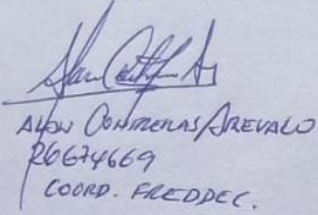 ALON CONTRERAS AREVALO
20674669
COORD. FREDDEC.